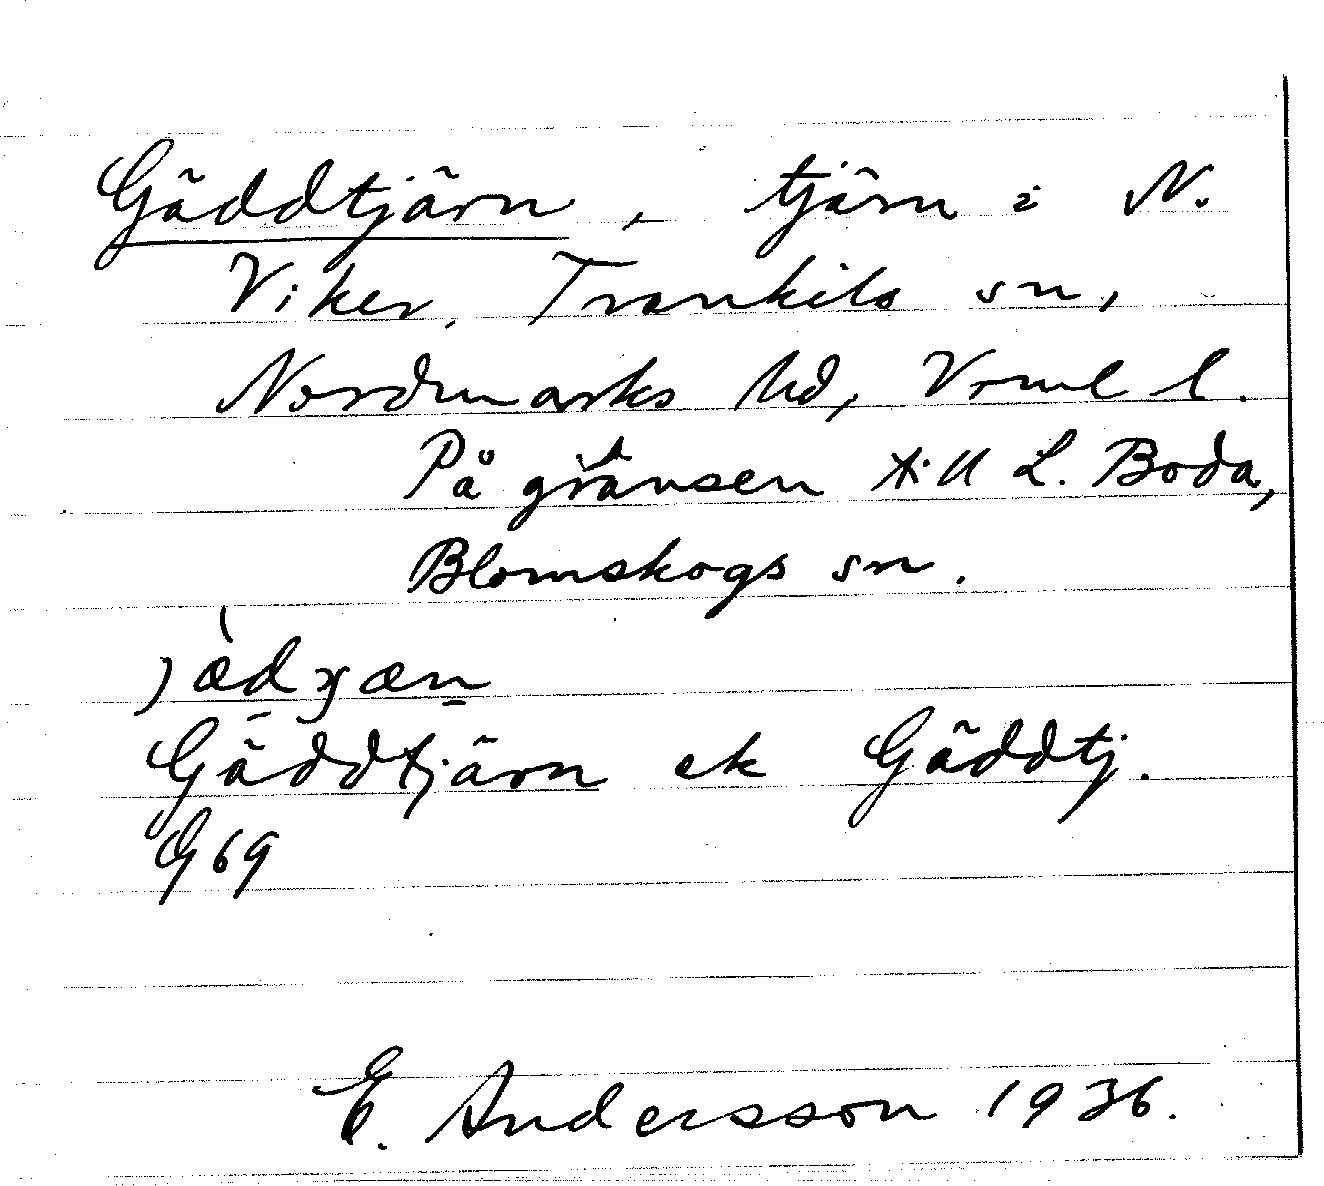 Gäddtjärn, tjärn i N.
Viker, Trankils sn,
Nordmarks hd, Vrml l.
På gränsen till L. Boda,
Blomskogs sn.
Gäddtjärn ek Gäddtj.
G69
E. Andersson 1936.